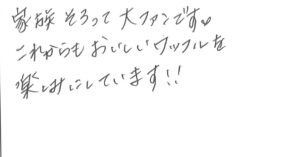 家族そろって大ファンです♥
これからもおいしいワッフルを
楽しみにしています!!